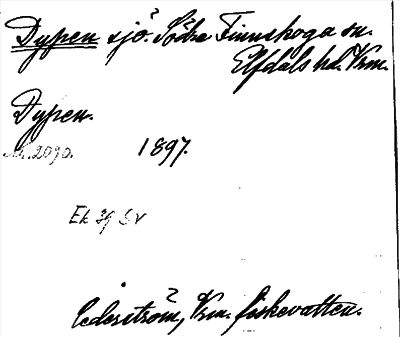 Dypen sjö. Södra Finnskoga sn.
Elfdals hd. Vrm.
Dypen.
1897.
Ek 39 SV
Cederström, Vrm. fiskevatten.